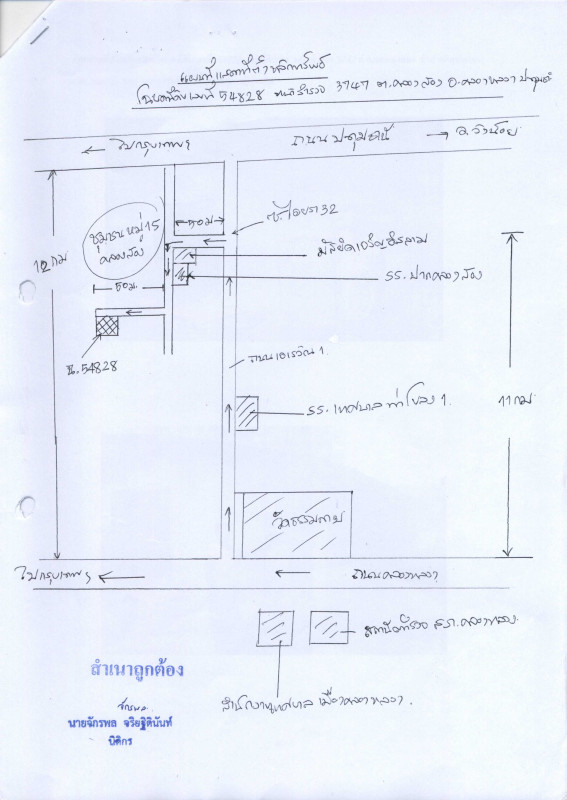 แผนที่แสดงที่ตั้งทรัพย์
โฉนดที่ดินเลขที่ 54828 หน้าสำรวจ 3747 ต.คลองสอง อ.คลองหลวง ปทุมธานี
ไปกรุงเทพฯ
ถนนปทุมธานี
อ.วังน้อย
50 ม
ซ.ไอยรา 32
ชุมชนหมู่ 15
คลองสอง
12 กม
รร.ปากคลองสอง
50 ม.
น.54828
ถนนเอราวัณ 1
รร.เทศบาลท่าโขลง 1
11 กม
ไปกรุงเทพฯ
ถนนคลองหลวง
สถานีตำรวจ สภ.คลองหลวง
สำนักงานเทศบาลเมืองคลองหลวง
สำเนาถูกต้อง
นายจักรพล จริยฐิตินันท์
นิติกร